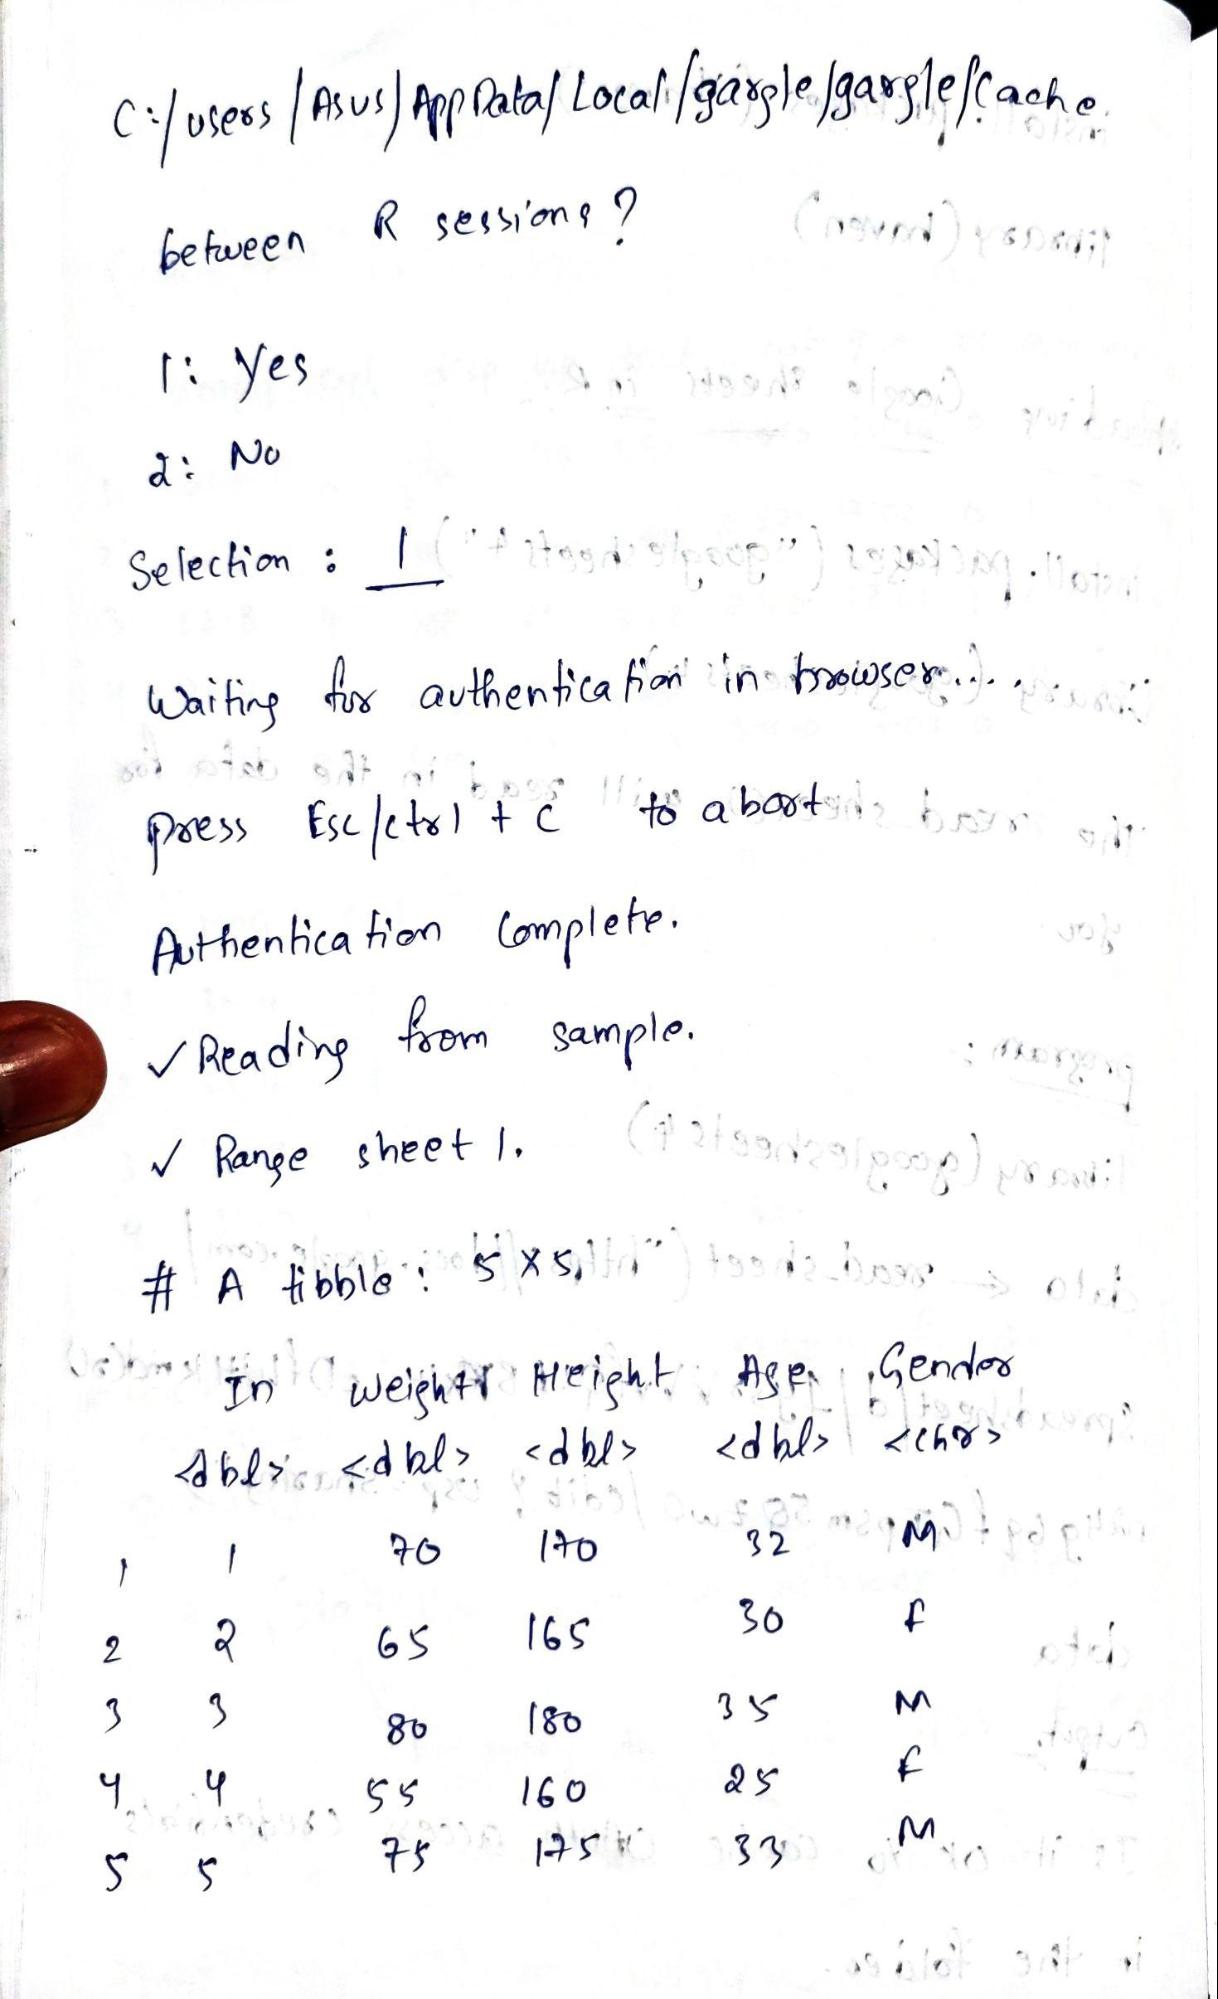 C:/users/Asus/AppData/Local/gargle/gargle/Cache
between R sessions?
1: Yes
2: No
Selection : 1
Waiting for authentication in browser....
press Esc/ctrl + c to abort
Authentication Complete.
✓ Reading from sample.
✓ Range sheet 1.
# A tibble : 5 x 5
In weight Height Age Gender
<dbl> <dbl> <dbl> <dbl> <chr>
1 1 70 170 32 M
2 2 65 165 30 f
3 3 80 180 35 M
4 4 55 160 25 f
5 5 75 175 33 M